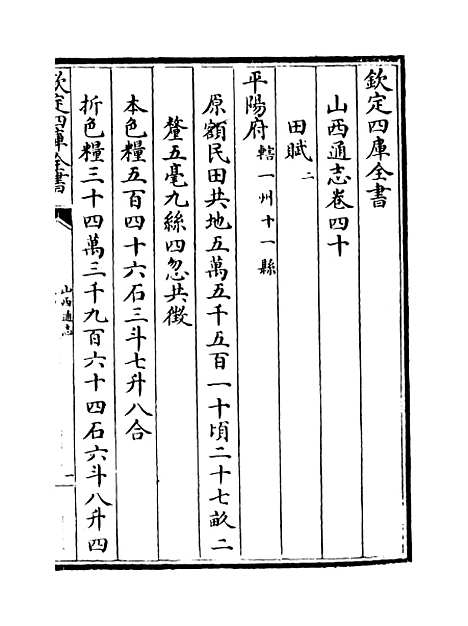 欽定四庫全書
山西通志卷四十
田賦二
平陽府轄一州十一縣
原額民田共地五萬五千五百一十頃二十七畝二
釐五毫九絲四忽共徴
本色糧五百四十六石三斗七升八合
折色糧三十四萬三千九百六十四石六斗八升四
欽定四庫全書
山西通志
一